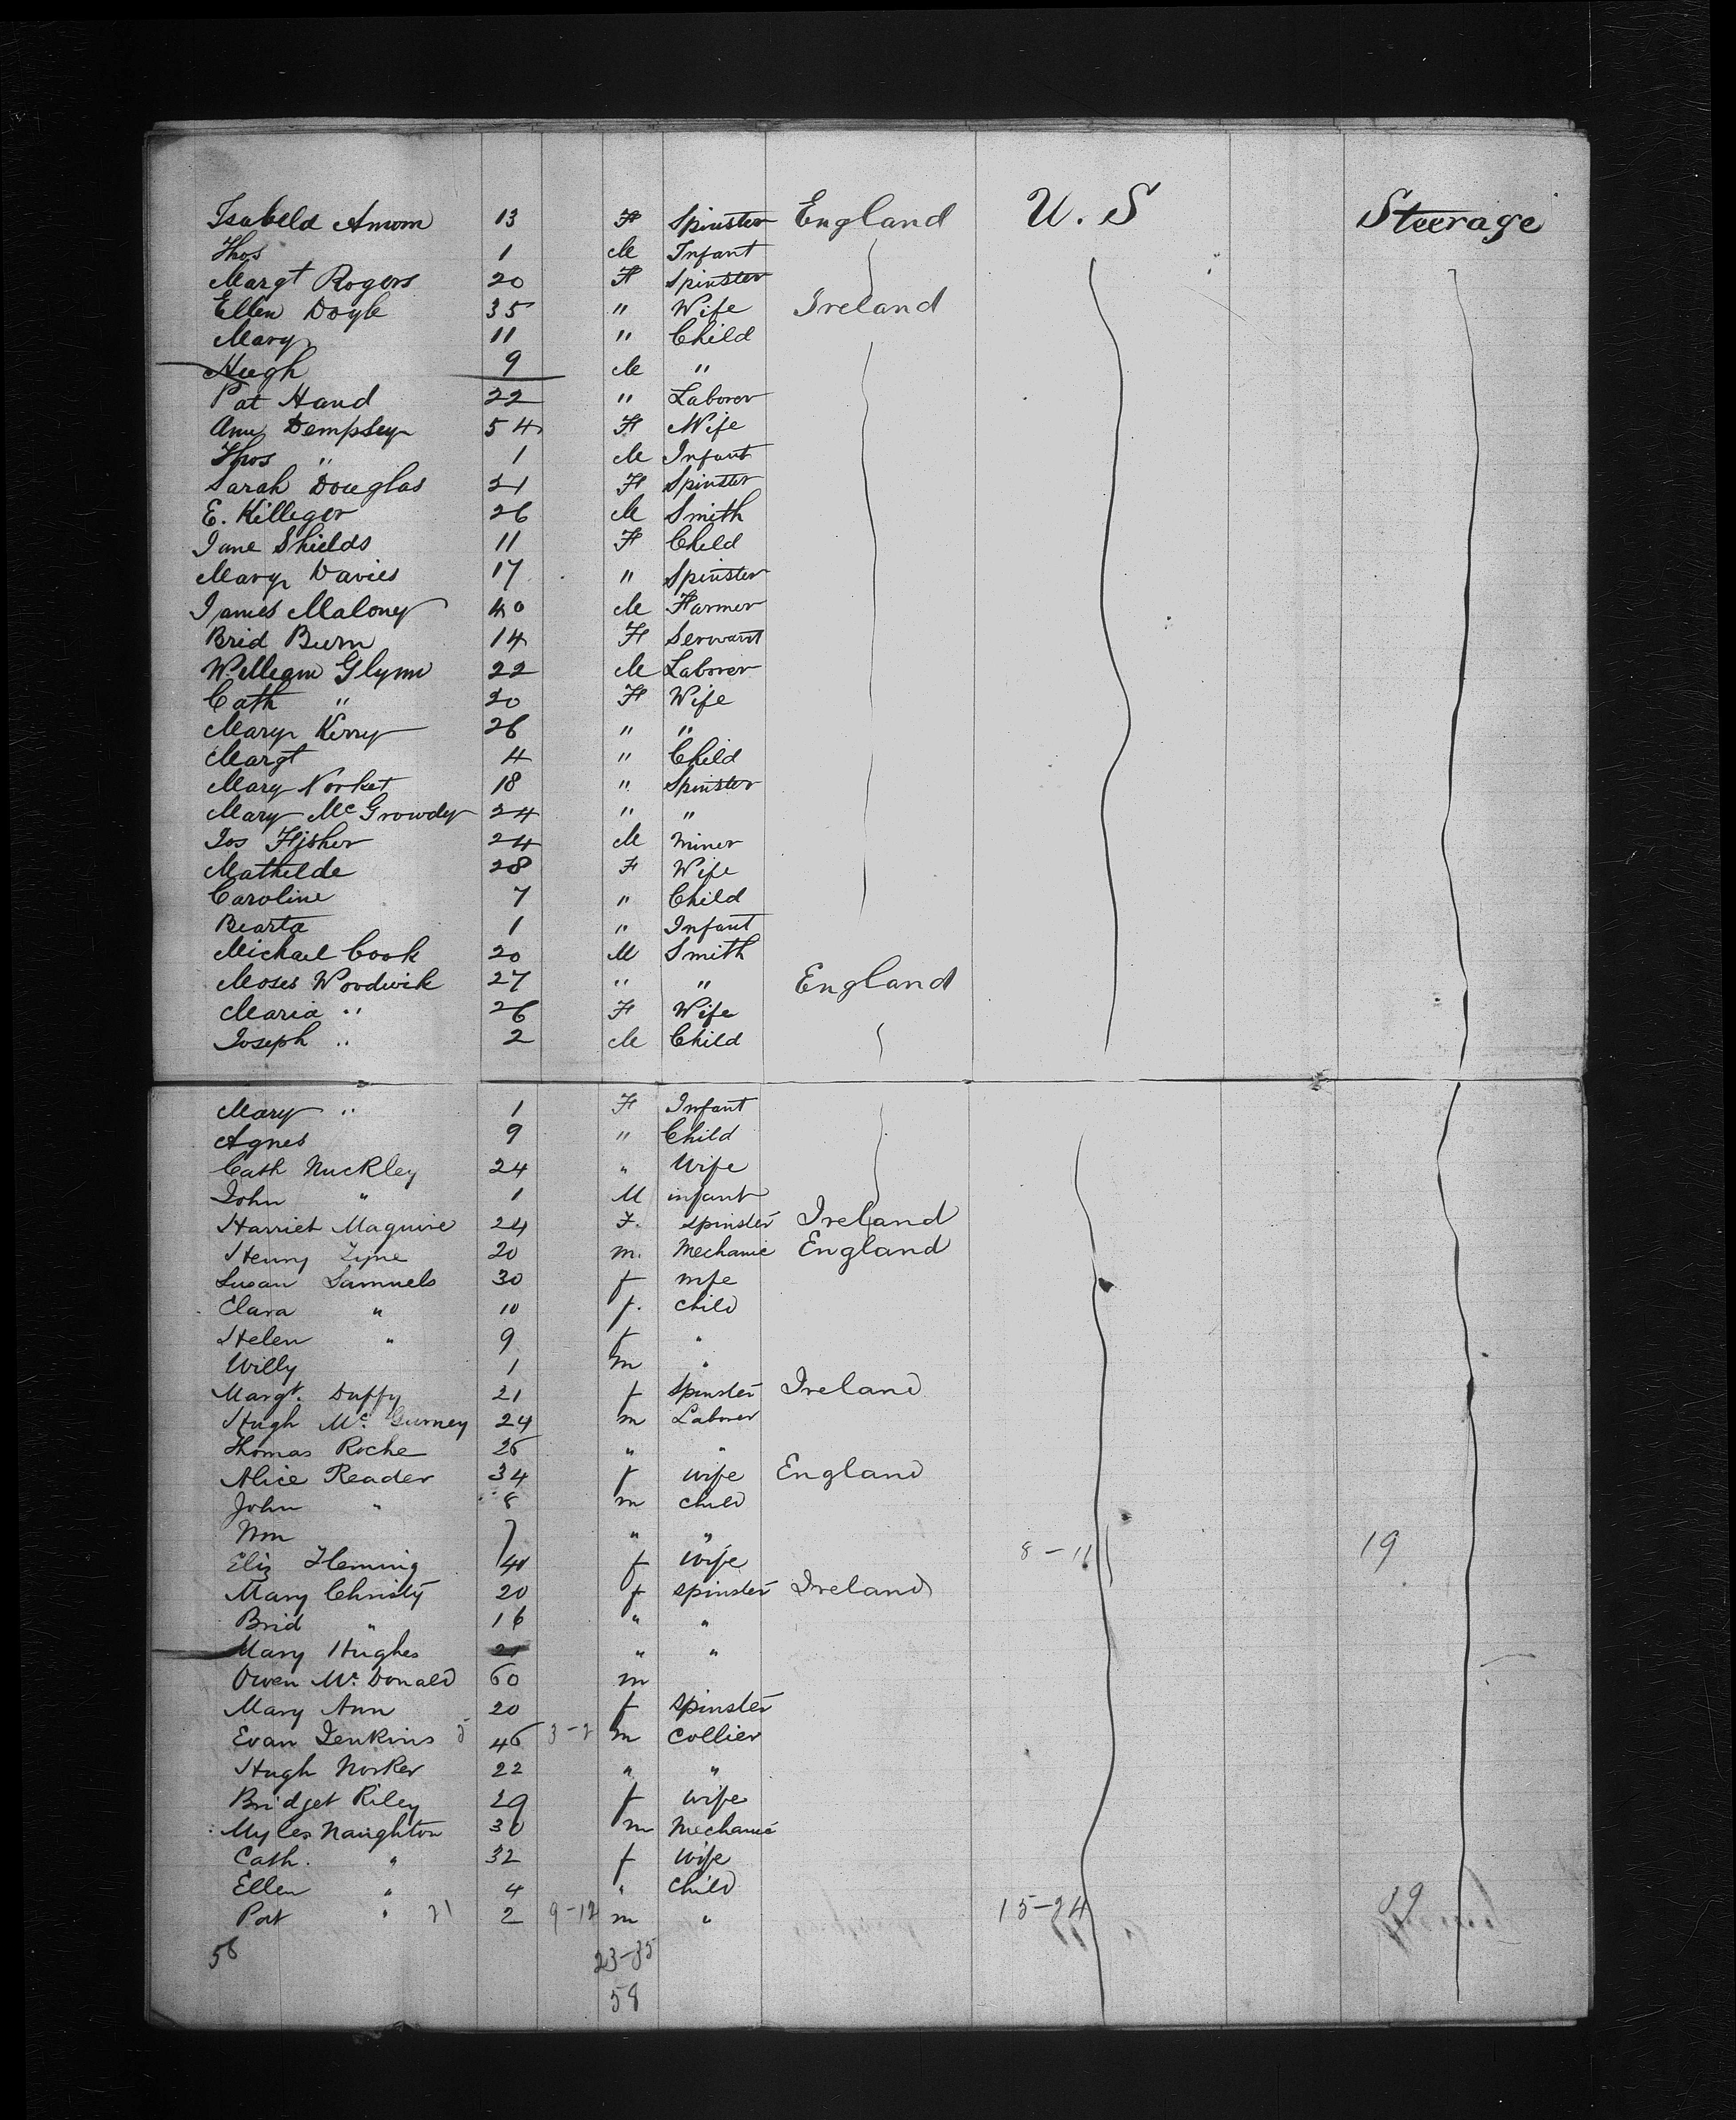 Isabella Amom 13 F Spinster England U. S Steerage
Thos 1 M Infant
Margt Rogers 20 F Spinster
Ellen Doyle 35 " Wife Ireland
Mary 11 " Child
Hugh 9 M "
Pat Hand 22 " Laborer
Ann Dempsey 54 F Wife
Thos " 1 M Infant
Sarah Douglas 21 F Spinster
E. Killeger 26 M Smith
Jane Shields 11 F Child
Mary Davies 17 " Spinster
James Maloney 40 M Farmer
Brid Burn 14 F Servant
William Glynn 22 M Laborer
Cath " 20 F Wife
Mary Kerry 26 " "
Margt 4 " Child
Mary Norket 18 " Spinster
Mary McGrowdy 24 " "
Jos Fisher 24 M miner
Mathilde 28 F Wife
Caroline 7 " Child
Bearta 1 " Infant
Michael Cook 20 M Smith
Moses Woodwik 27 " " England
Maria " 26 F Wife
Joseph " 2 M Child
Mary " 1 F Infant
Agnes 9 " Child
Cath Nuckley 24 " Wife
John " 1 M infant
Harriet Maguire 24 F. spinster Ireland
Henry Tyne 20 m. Mechanic England
Susan Samuels 30 f wife
Clara " 10 f. child
Helen " 9 f "
Willy 1 m "
Margt. Duffy 21 f spinster Ireland
Hugh Mc. Gurney 24 m Laborer
Thomas Roche 26 " "
Alice Reader 34 f wife England
John " 8 m child
Wm 7 " "
Eliz Fleming 41 f wife 8-11 19
Mary Christy 20 f spinster Ireland
Brid " 16 " "
Mary Hughes 21 " "
Owen Mc. Donald 60 m
Mary Ann 20 f spinster
Evan Jenkins 5 46 3-2 m collier
Hugh Norker 22 " "
Bridget Riley 29 f wife
Myles Naughton 30 m Mechanic
Cath. " 32 f wife
Ellen " 4 " child
Pat " 21 2 9-12 m " 15-24 39
58 23-35
58